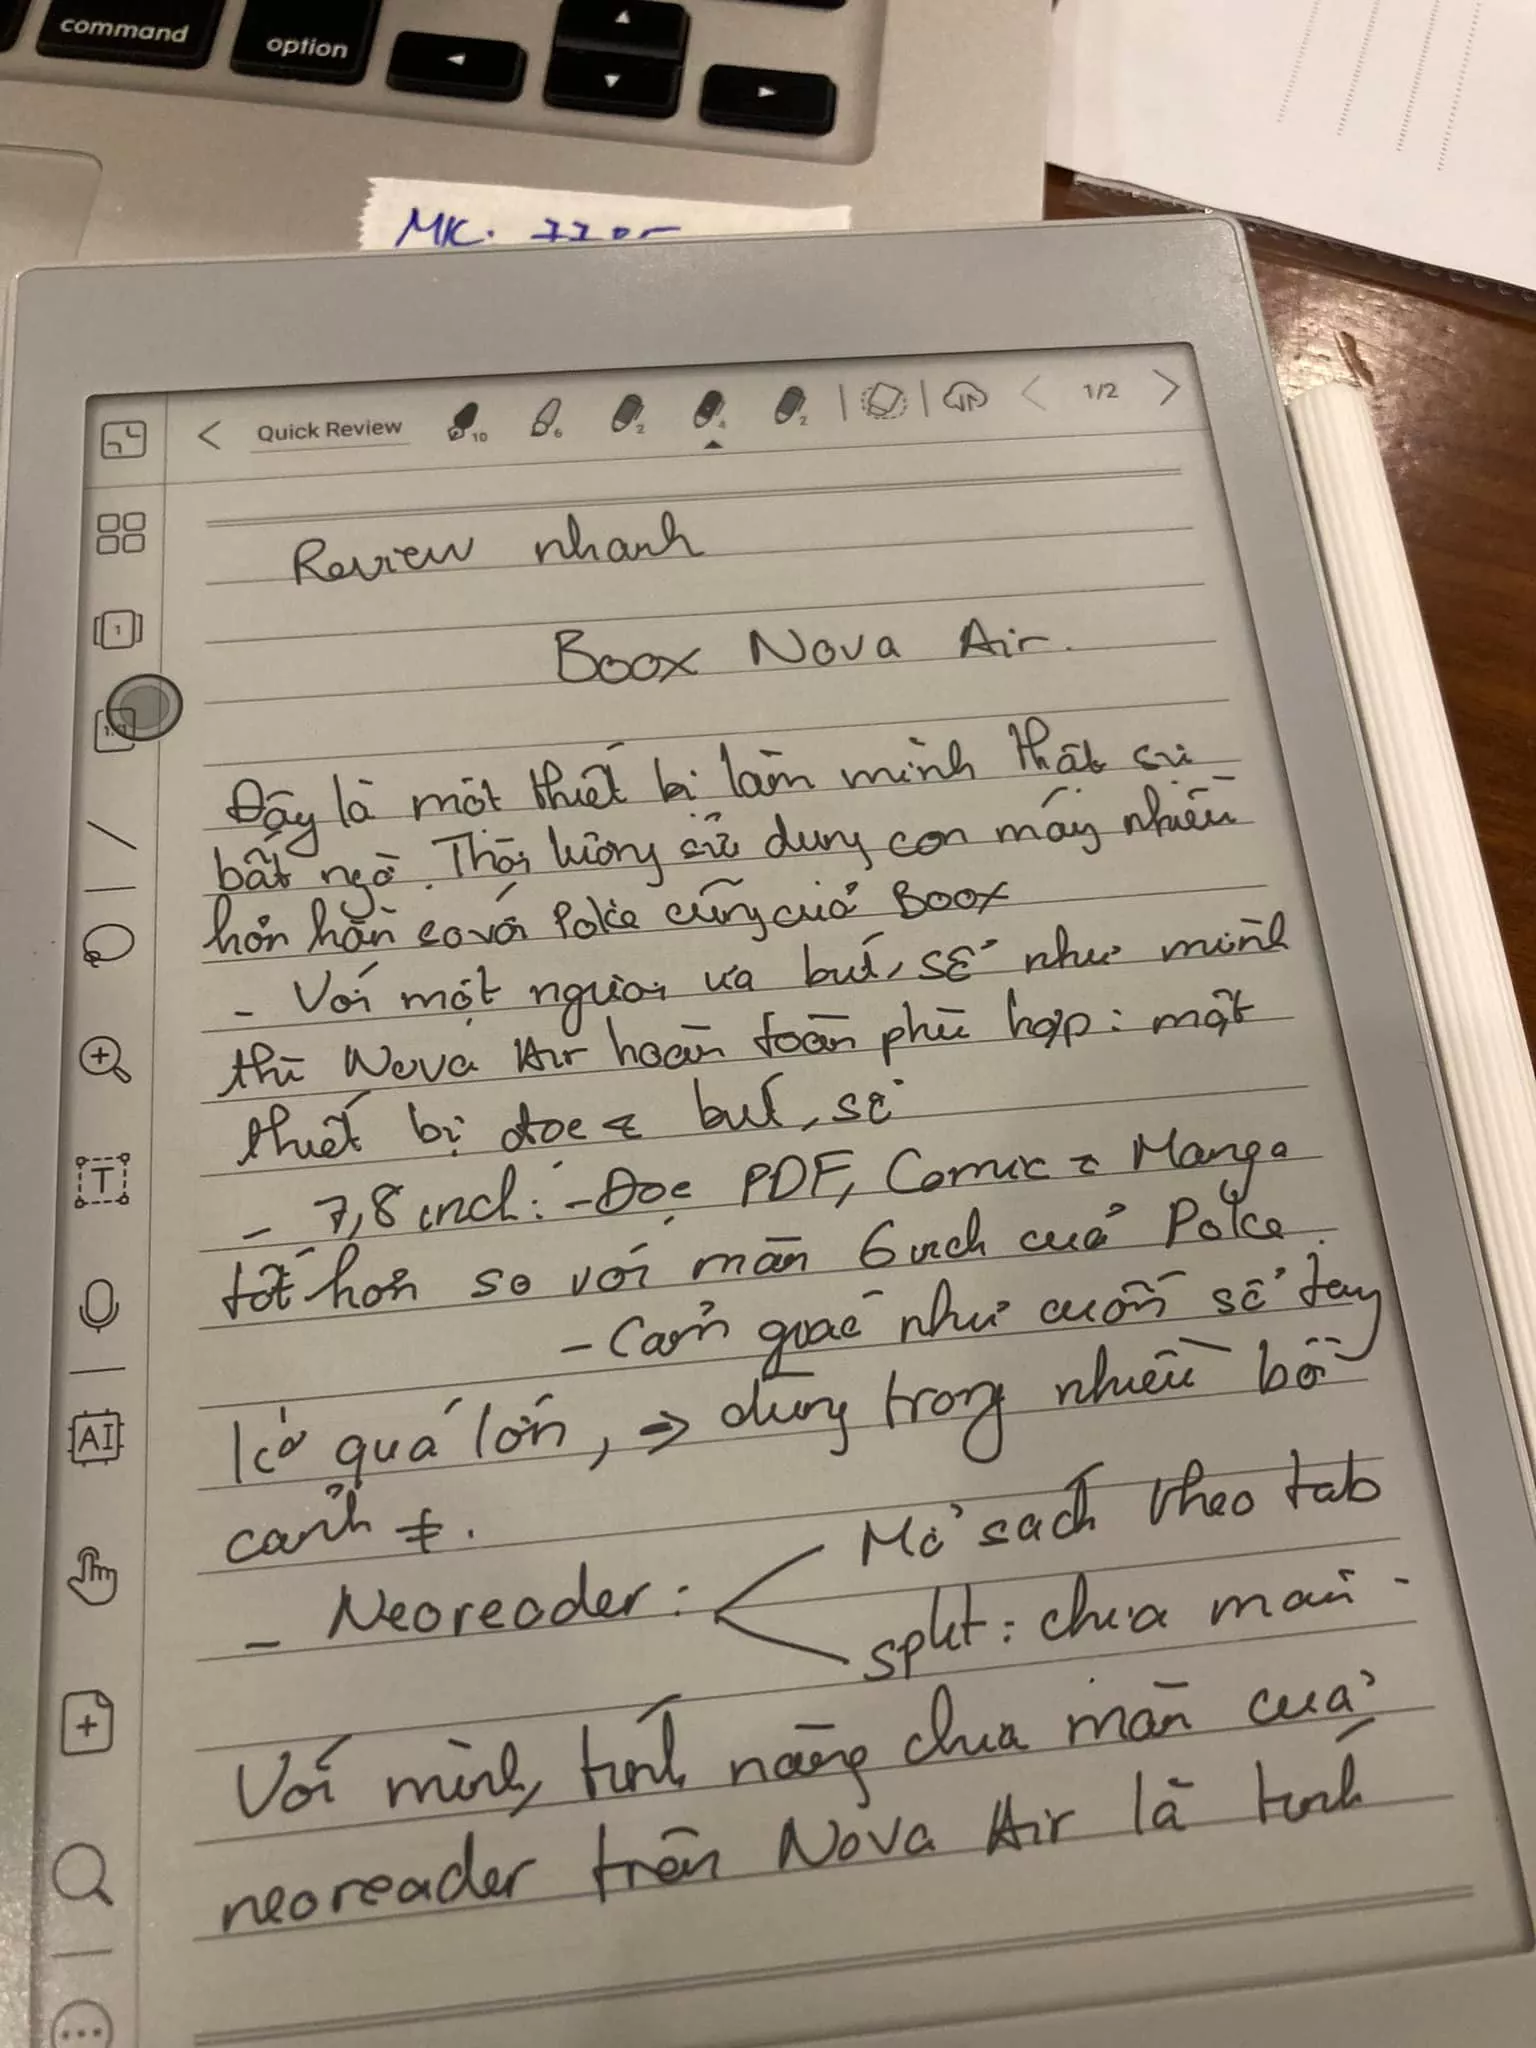 command
option
MK.
Quick Review
10
6
2
4
2
1/2
1
Review nhanh
Boox Nova Air.
Đây là một thiết bị làm mình thật sự
bất ngờ. Thời lượng sử dụng con máy nhiều
hơn hẳn so với Poke cũng của Boox
- Với một người ưa bút, sổ như mình
thì Nova Air hoàn toàn phù hợp: một
thiết bị đọc & bút, sổ
- 7,8 inch: - Đọc PDF, Comic & Manga
tốt hơn so với màn 6 inch của Poke.
- Cảm giác như cuốn sổ tay
kỏ quá lớn, → dùng trong nhiều bối
cảnh ≠.
- Neoreader: Mở sách theo tab
split: chia màn.
Với mình, tính năng chia màn của
neoreader trên Nova Air là tính
T
AI